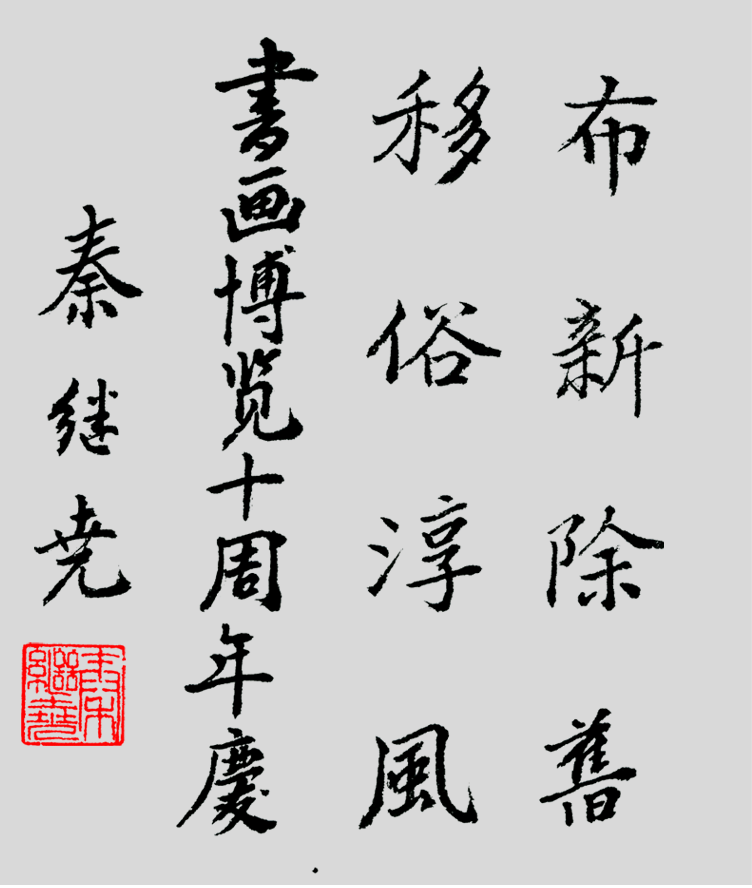 布新除舊
移俗淳風
書画博览十周年慶
秦继尭
秦
繼堯